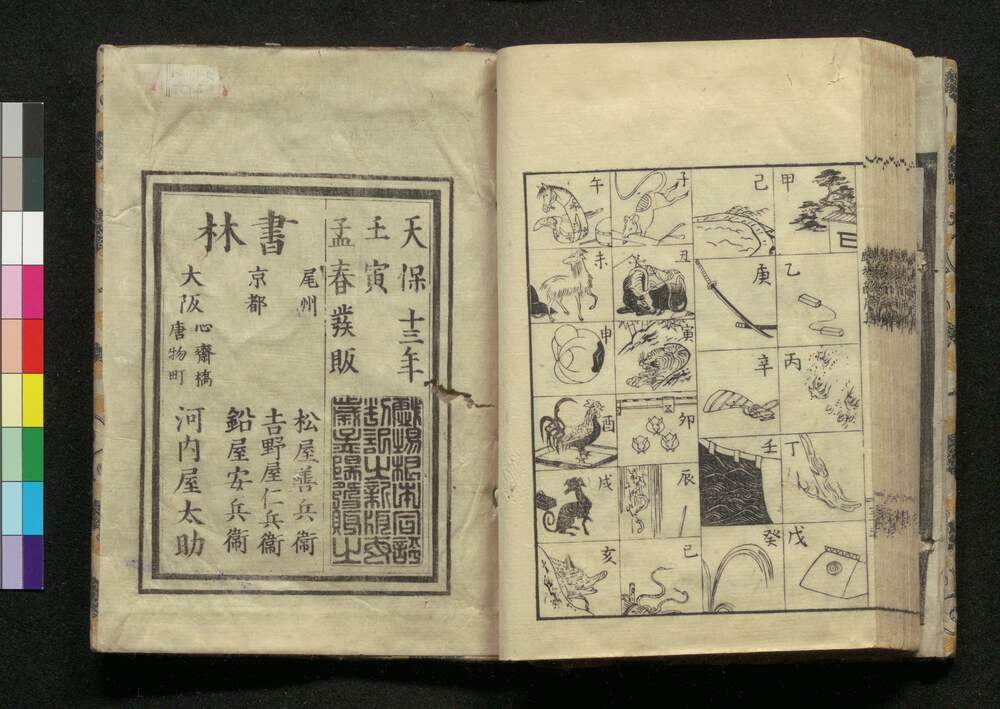 甲
乙
丙
丁
戊
己
庚
辛
壬
癸
子
丑
寅
卯
辰
巳
午
未
申
酉
戌
亥
天保十三年
壬寅
孟春發販
書林
尾州 松屋善兵衞
京都 吉野屋仁兵衞
鉛屋安兵衞
大阪 心齋橋
唐物町
河内屋太助